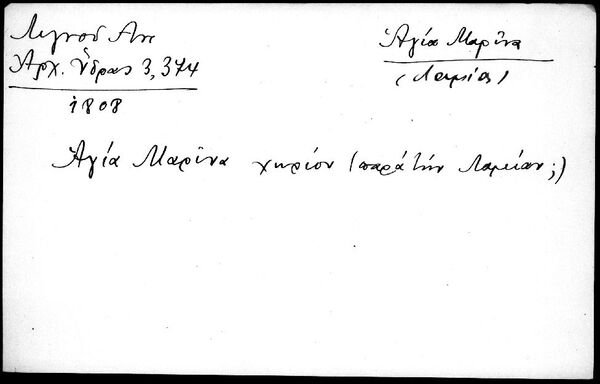 Λιγνοῦ Ἀντ
Ἀρχ. Ὕδρας 3, 374
1808
Ἁγία Μαρῖνα
(Λαμίας)
Ἁγία Μαρῖνα χωρίον (παρὰ τὴν Λαμίαν;)